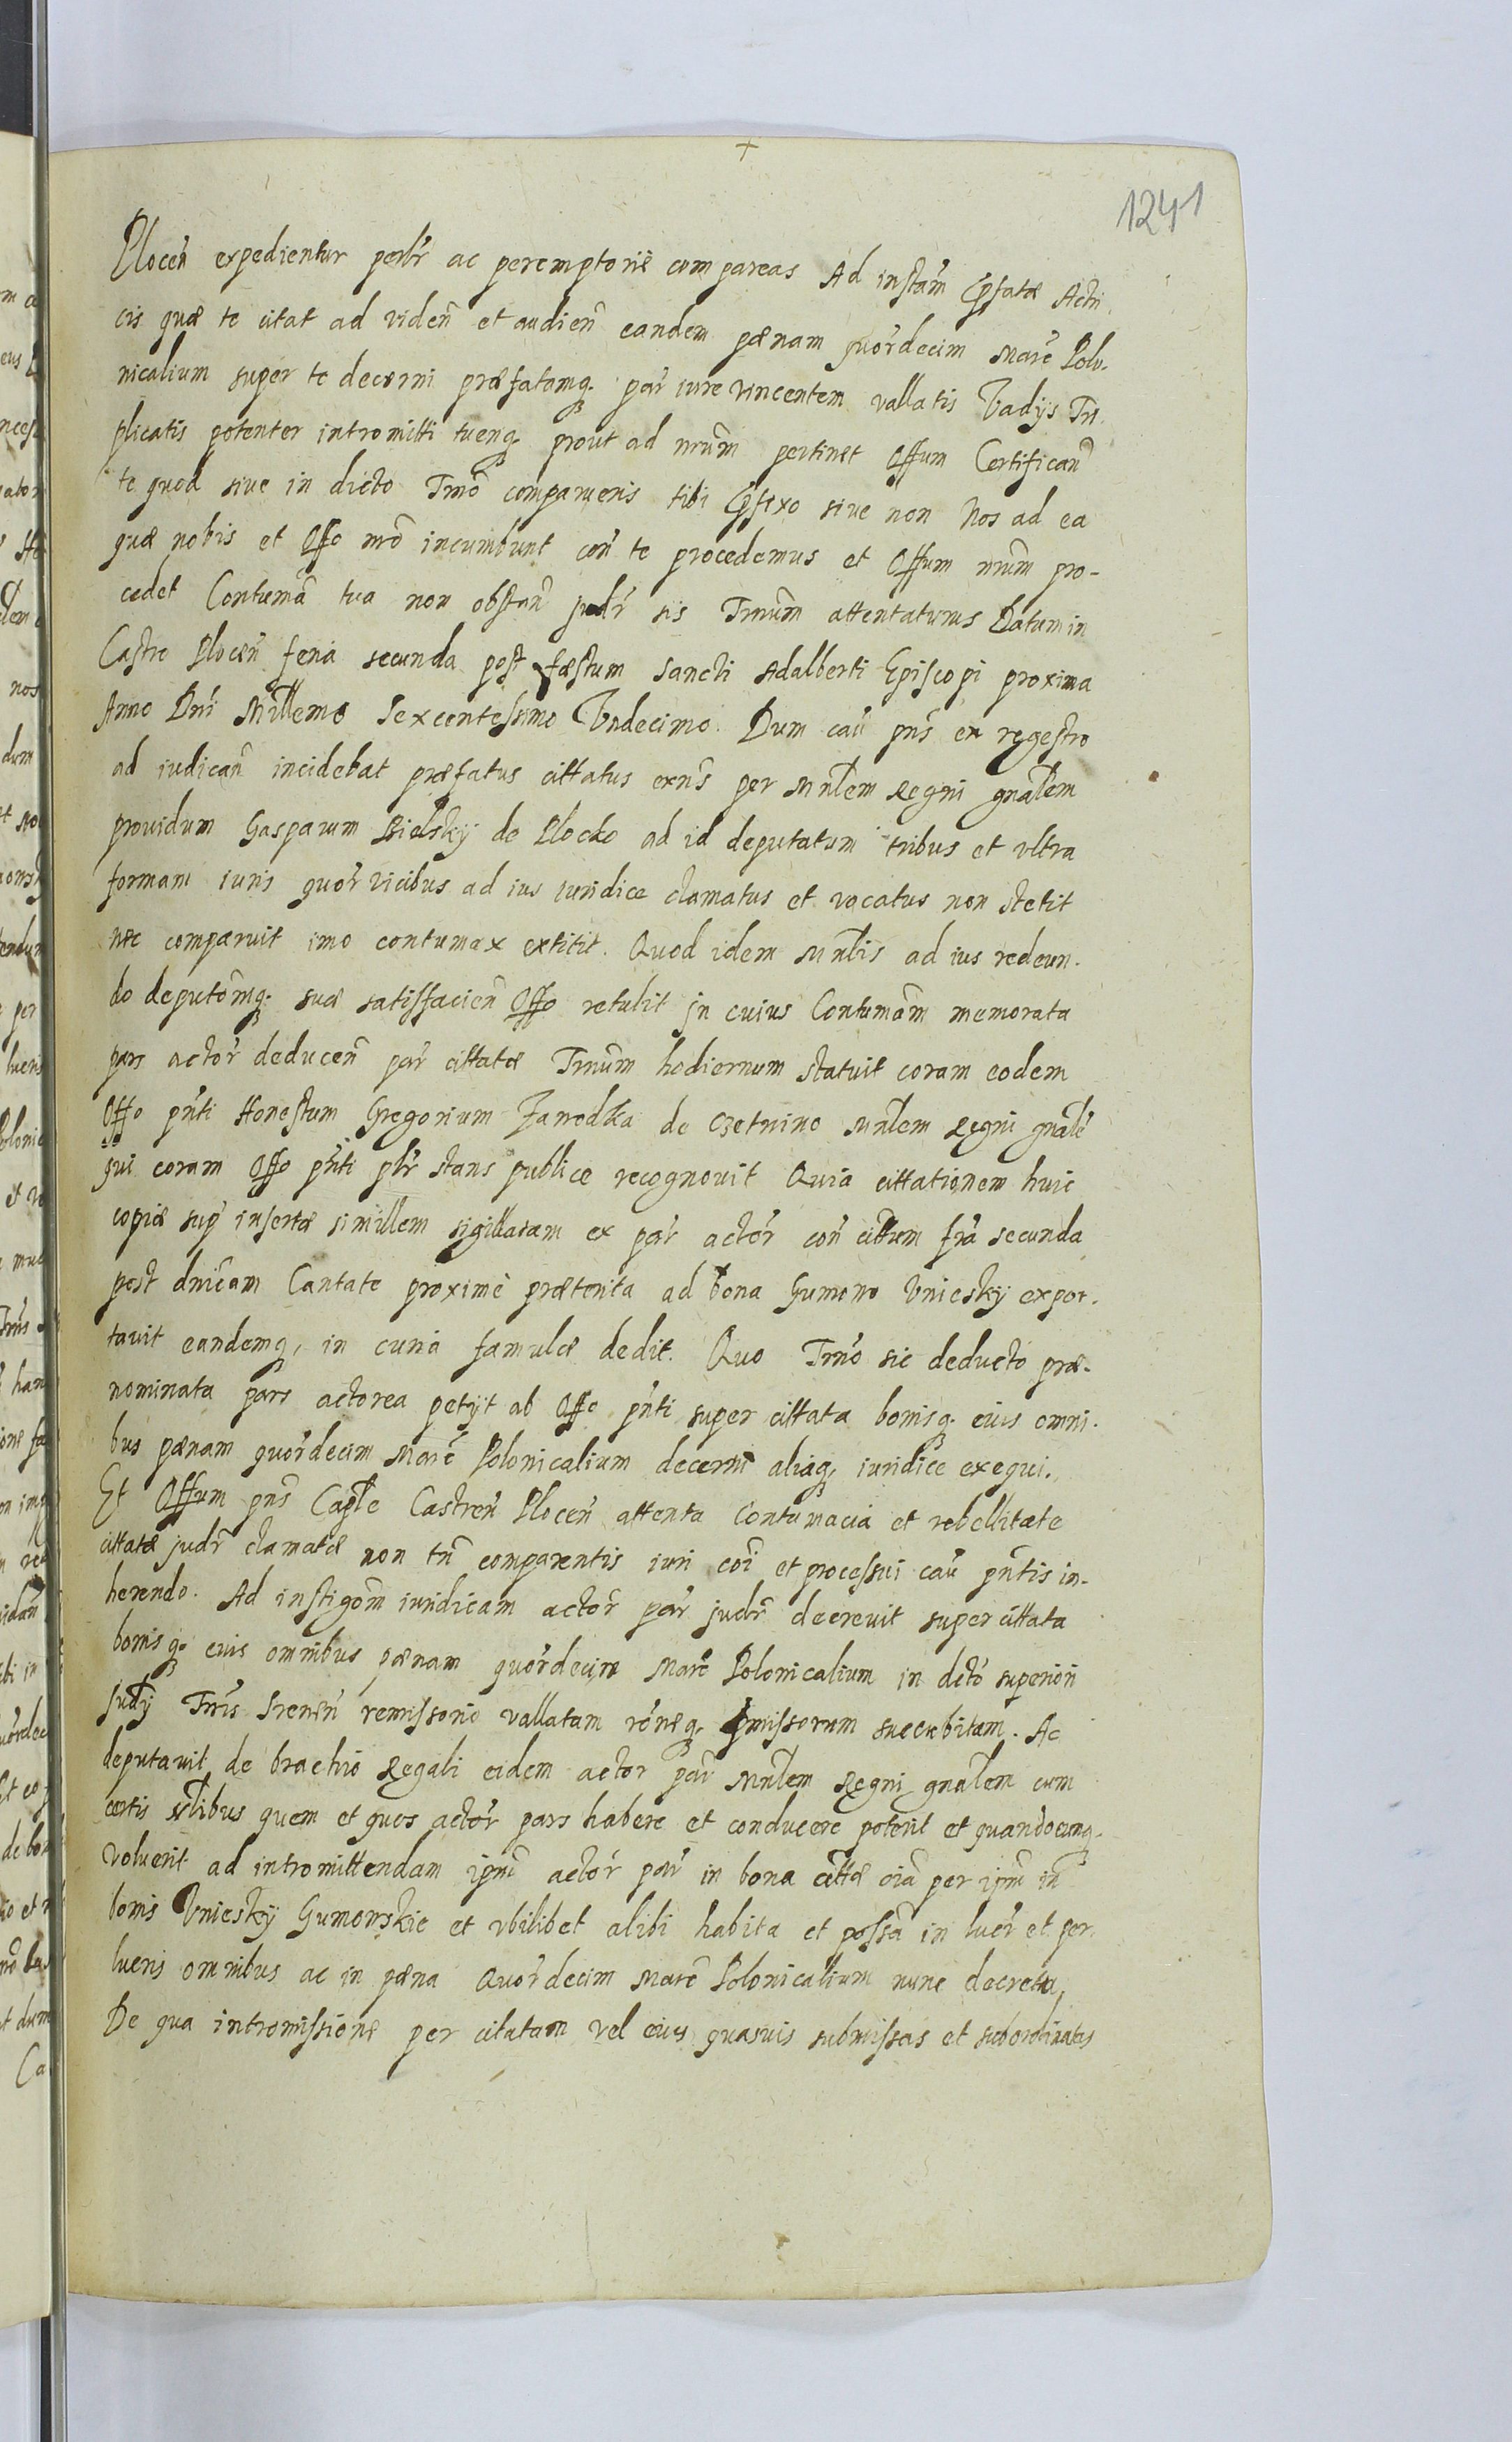 1241
Plocen̄ expedientur perlr̄ ac peremptorie compareas Ad instam̄ Ꝓfatæ Actri.
cis quæ te citat ad viden̄ et audien̄ eandem pænam quor̄decim Marc̄ Polo.
nicalium super te decerni præfatamq. par̄ iure vincentem vallatis Vadijs Tri.
plicatis potenter intromitti tuenq. prout ad nrūm pertinet Offum Certifican̄
te quod sive in dicto Trnō comparueris tibi Ꝓfixo sive non Nos ad ea
quæ nobis et Offo nrō incumbunt con̄ te procedemus et Offum nrūm pro-
cedet Contumā tua non obstan̄ judr̄ sis Trnūm attentaturus Datum in
Castro Plocen̄ feria secunda post fæstum Sancti Adalberti Episcopi proxima
Anno Dnī Millemo Sexcentessimo Vndecimo. Dum caū pn̄s ex regestro
ad iudican̄ incidebat præfatus cittatus exn̄s per Mnlem Regni gnālem
providum Gasparum Bielskÿ de Plocko ad id deputatum tribus et vltra
formam iuris quor̄ vicibus ad ius iuridice clamatus et vocatus non stetit
nec comparuit imo contumax extitit. Quod idem Mnlis ad ius redeun.
do deputōmq. suæ satisfacien̄ Offo retulit in cuius Contumām memorata
pars actor̄ deducen̄ par̄ cittatæ Trnūm hodiernum statuit coram eodem
Offo pn̄ti Honestum Gregorium Zarodka de Czetnino Mnlem Regni gnāle
qui coram Offo pn̄ti plr̄ stans publice recognovit Quia cittationem huic
copiæ sup̄ insertæ simillem sigillatam ex par̄ actor̄ con̄ cittum frā secunda
post dnīcam Cantate proximè præterita ad bona Gumowo Vnieskÿ expor.
tavit eandemq, in curia famulæ dedit. Quo Trnō sic deducto præ.
nominata pars actorea petijt ab Offo pn̄ti super cittata bonisq. eius omni.
bus pænam quor̄decim Marc̄ Polonicalium decerni aliaq, iuridice exequi.
Et Offum pn̄s Caple Castren̄ Plocen̄ attenta Contumacia et rebellitate
cittatæ judr̄ clamatæ non tn̄ comparentis iuri coī et processui caū pn̄tis in.
herendo. Ad instigōm iuridicam actor̄ par̄ judr̄ decrevit super cittata
bonisq. eius omnibus pænam quor̄decim Marc̄ Polonicalium in dctō superiori
Judÿ Trīs remissorio vallatam rōneq. Ꝓmissorum succubitam. Ac
deputavit de brachio Regali eidem actor par̄ Mnlem Regni gnālem cum
certis nlibus quem et quos actor̄ pars habere et conducere poterit et quandocunq.
voluerit ad intromittendam ipm̄ actor̄ par̄ in bona cittæ oiā per ipm̄ in
bonis Vnieskÿ Gumowskie et vbilibet alibi habita et possā in lucr̄ et per.
lucris omnibus ac in pæna Quor̄decim Marc̄ Polonicalium nunc decreta,
De qua intromissione per citatam vel eius quasuis submissas et subordinatas